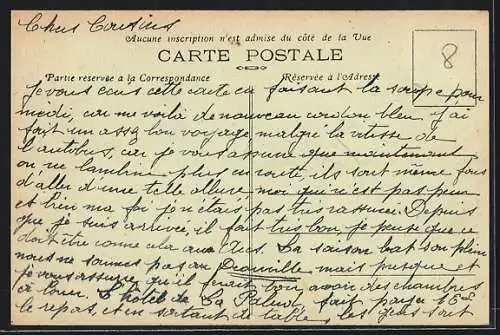 Chers Cousins
Aucune inscription n'est admise du côté de la Vue
CARTE POSTALE
Partie réservée à la Correspondance
Réservée à l'Adresse
8
Je vous écris cette carte en faisant la soupe pour
midi, car me voilà de nouveau cordon bleu, j'ai
fait un assez bon voyage malgré la vitesse de
l'autobus, car je vous assure que maintenant
on ne lambine plus en route, ils sont même fous
d'aller d'une telle allure moi qui n'est pas peur
et bien ma foi je n'étais pas très rassurée. Depuis
que je suis arrivée, il fait très bon je pense que ce
doit être comme cela aux Lus. La saison bat son plein
nous ne sommes pas an Deauville mais presque et
je vous assure, qu'il ferait bon avoir des chambres
à louer. L'hôtel de La fait payer 15 es
le repas, et en sortant de table, les gens sont